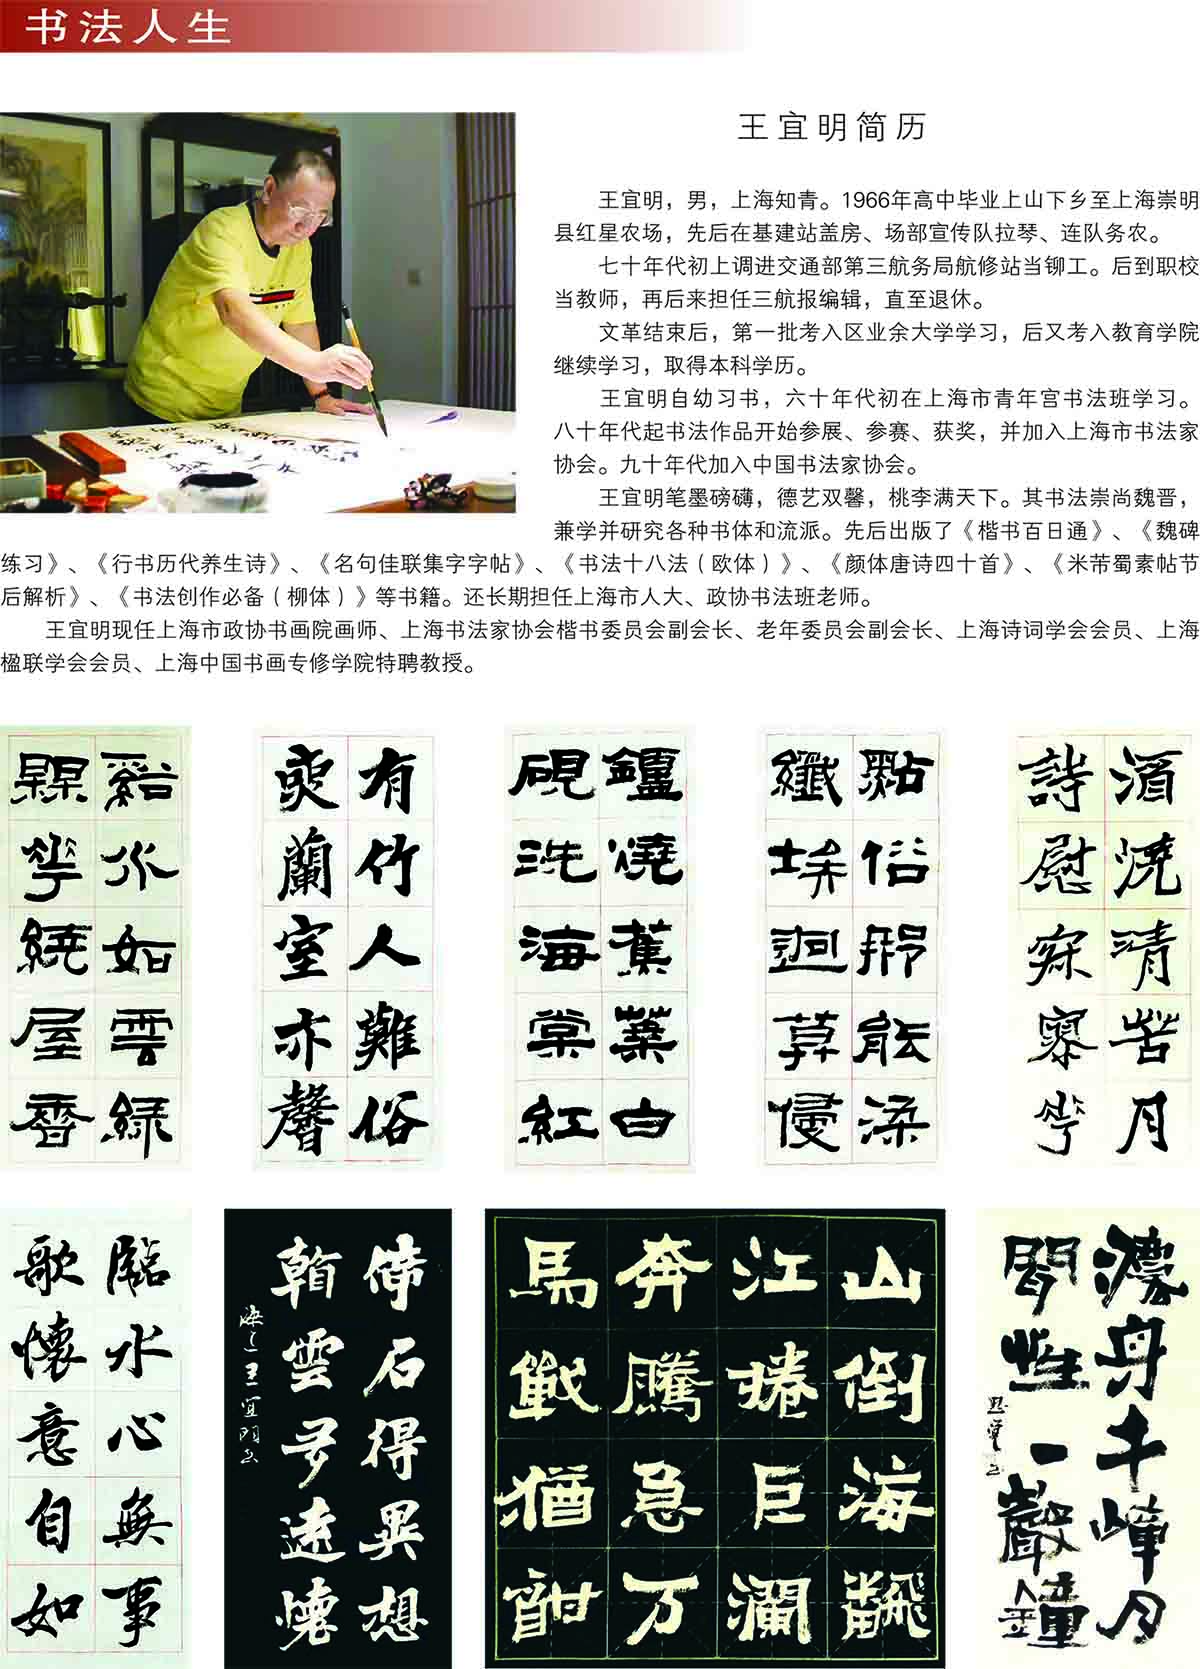 书法人生
王宜明简历
王宜明，男，上海知青。1966年高中毕业上山下乡至上海崇明
县红星农场，先后在基建站盖房、场部宣传队拉琴、连队务农。
七十年代初上调进交通部第三航务局航修站当铆工。后到职校
当教师，再后来担任三航报编辑，直至退休。
文革结束后，第一批考入区业余大学学习，后又考入教育学院
继续学习，取得本科学历。
王宜明自幼习书，六十年代初在上海市青年宫书法班学习。
八十年代起书法作品开始参展、参赛、获奖，并加入上海市书法家
协会。九十年代加入中国书法家协会。
王宜明笔墨磅礴，德艺双馨，桃李满天下。其书法崇尚魏晋，
兼学并研究各种书体和流派。先后出版了《楷书百日通》、《魏碑
练习》、《行书历代养生诗》、《名句佳联集字字帖》、《书法十八法（欧体）》、《颜体唐诗四十首》、《米芾蜀素帖节
后解析》、《书法创作必备（柳体）》等书籍。还长期担任上海市人大、政协书法班老师。
王宜明现任上海市政协书画院画师、上海书法家协会楷书委员会副会长、老年委员会副会长、上海诗词学会会员、上海
楹联学会会员、上海中国书画专修学院特聘教授。
谿水如雲緑
縣花繞屋香
有竹人難俗
奭蘭室亦馨
鑪燒蕉葉白
硯洗海棠紅
點俗那能染
纖埃迥莫侵
酒澆清苦月
詩慰寂寥花
臨水心無事
歌懷意自如
倚石得異想
翰雲多遠懷
海上王宜明书
山倒海翻
江捲巨瀾
奔騰急万
馬戰猶酣
濠舟千嶂月
聞性一聲鐘